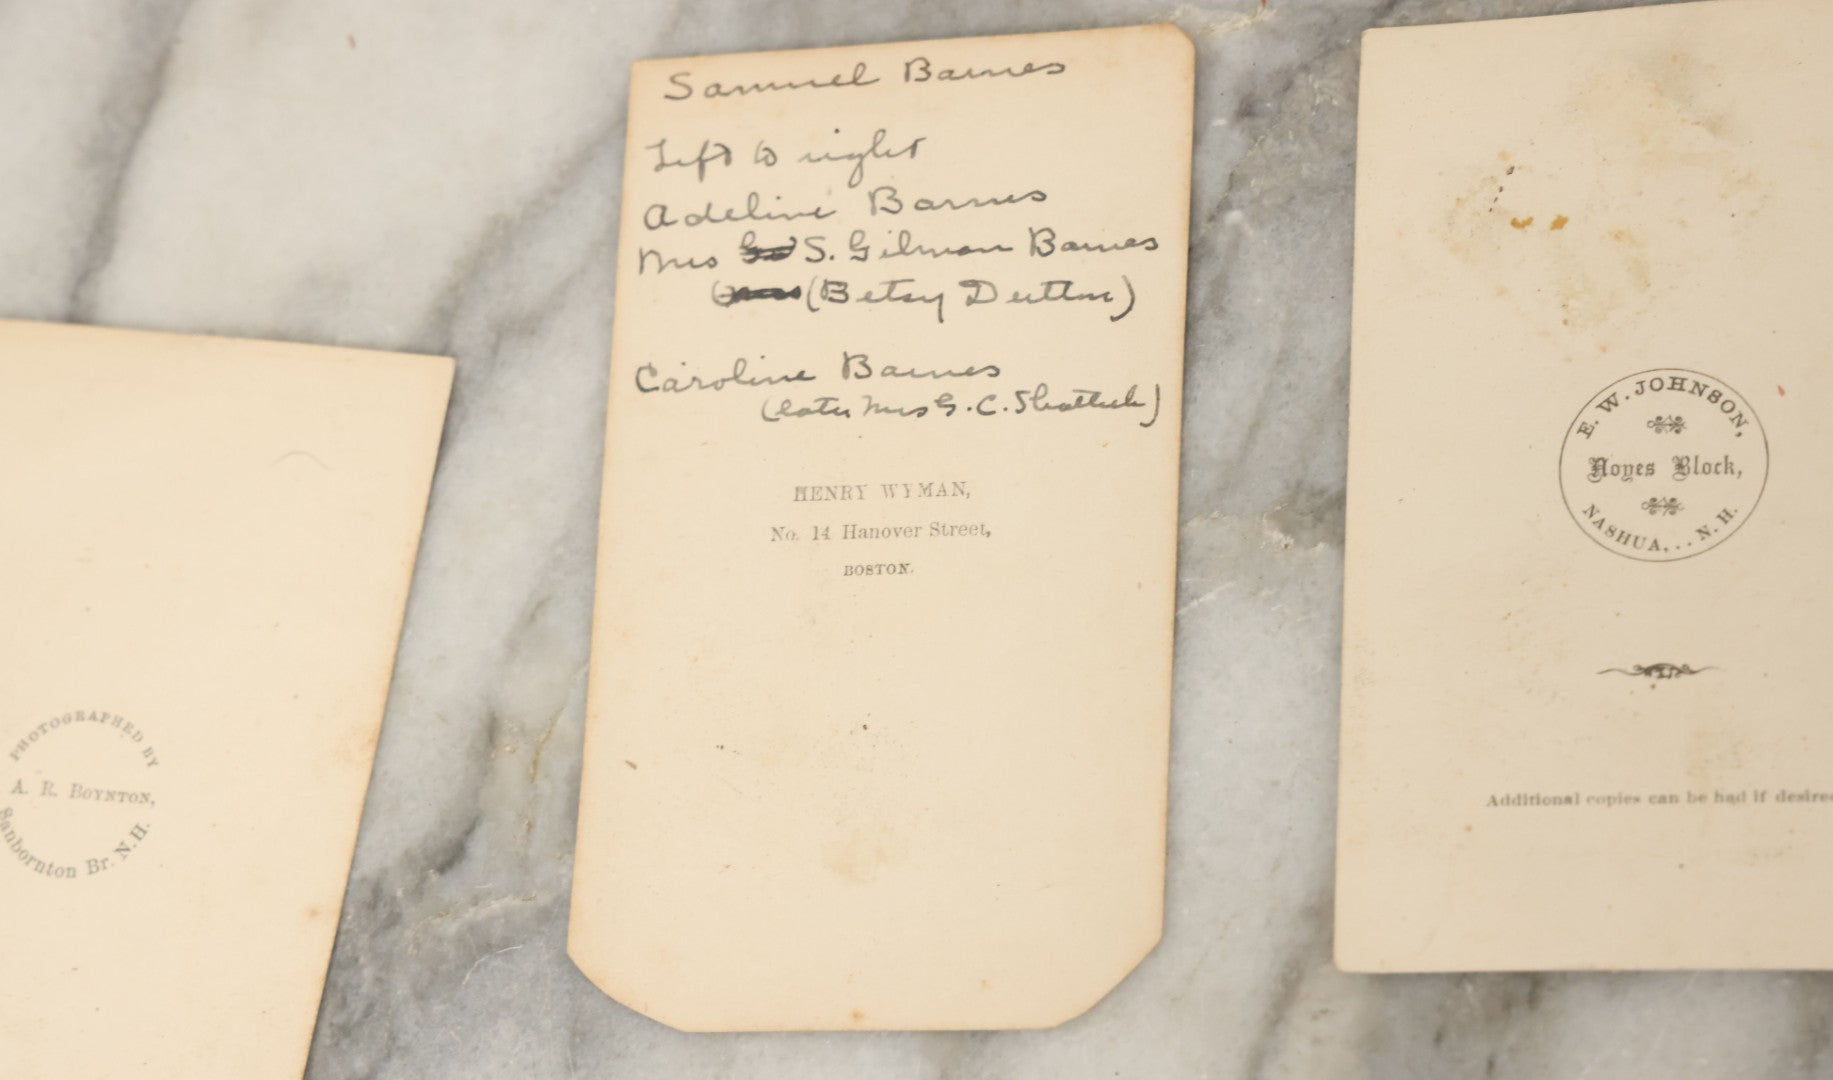 PHOTOGRAPHED BY
A. R. BOYNTON,
Sanbornton Br. N.H.
Samuel Barnes
Left to right
Adeline Barnes
Mrs S. Gilman Barnes
(Betsy Dutton)
Caroline Barnes
(later Mrs G. C. Shattuck)
HENRY WYMAN,
No. 14 Hanover Street,
BOSTON.
E. W. JOHNSON,
Noyes Block,
NASHUA, . . N. H.
Additional copies can be had if desired